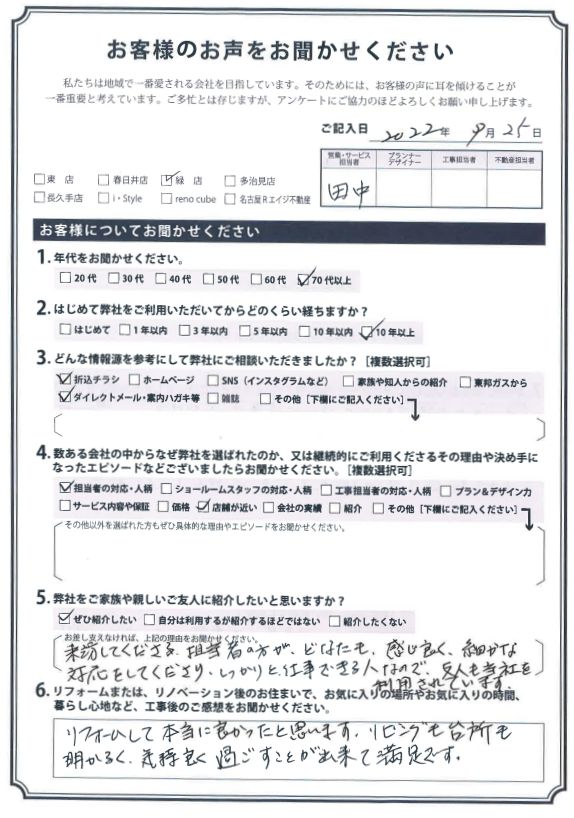 お客様のお声をお聞かせください
私たちは地域で一番愛される会社を目指しています。そのためには、お客様の声に耳を傾けることが
一番重要と考えています。ご多忙とは存じますが、アンケートにご協力のほどよろしくお願い申し上げます。
ご記入日 2022年 9月 25日
営業・サービス担当者 プランナーデザイナー 工事担当者 不動産担当者
田中
□東 店 □春日井店 ☑緑 店 □多治見店
□長久手店 □i・Style □reno cube □名古屋Rエイジ不動産
お客様についてお聞かせください
1. 年代をお聞かせください。
□20代 □30代 □40代 □50代 □60代 ☑70代以上
2. はじめて弊社をご利用いただいてからどのくらい経ちますか？
□はじめて □1年以内 □3年以内 □5年以内 □10年以内 ☑10年以上
3. どんな情報源を参考にして弊社にご相談いただきましたか？［複数選択可］
☑折込チラシ □ホームページ □SNS（インスタグラムなど） □家族や知人からの紹介 □東邦ガスから
☑ダイレクトメール・案内ハガキ等 □雑誌 □その他［下欄にご記入ください］
4. 数ある会社の中からなぜ弊社を選ばれたのか、又は継続的にご利用くださるその理由や決め手に
なったエピソードなどございましたらお聞かせください。［複数選択可］
☑担当者の対応・人柄 □ショールームスタッフの対応・人柄 □工事担当者の対応・人柄 □プラン＆デザイン力
□サービス内容や保証 □価格 ☑店舗が近い □会社の実績 □紹介 □その他［下欄にご記入ください］
その他以外を選ばれた方もぜひ具体的な理由やエピソードをお聞かせください。
5. 弊社をご家族や親しいご友人に紹介したいと思いますか？
☑ぜひ紹介したい □自分は利用するが紹介するほどではない □紹介したくない
お差し支えなければ、上記の理由をお聞かせください。
来訪してくださる、担当者の方が、どなたも、感じ良く、細かな
対応をしてくださり、しっかりと仕事できる人なので、友人も当社を
利用されています。
6. リフォームまたは、リノベーション後のお住まいで、お気に入りの場所やお気に入りの時間、
暮らし心地など、工事後のご感想をお聞かせください。
リフォームして本当に良かったと思います。リビングも台所も
明かるく、気持良く過ごすことが出来て満足です。